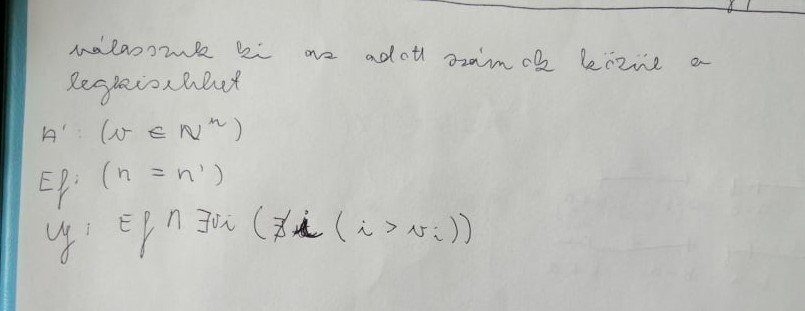 válasszuk ki az adott számok közül a
legkisebbet
A: (v ∈ ℕⁿ)
Ef: (n = n')
Uf: Ef ∩ ∃vi (∄i (i > vᵢ))